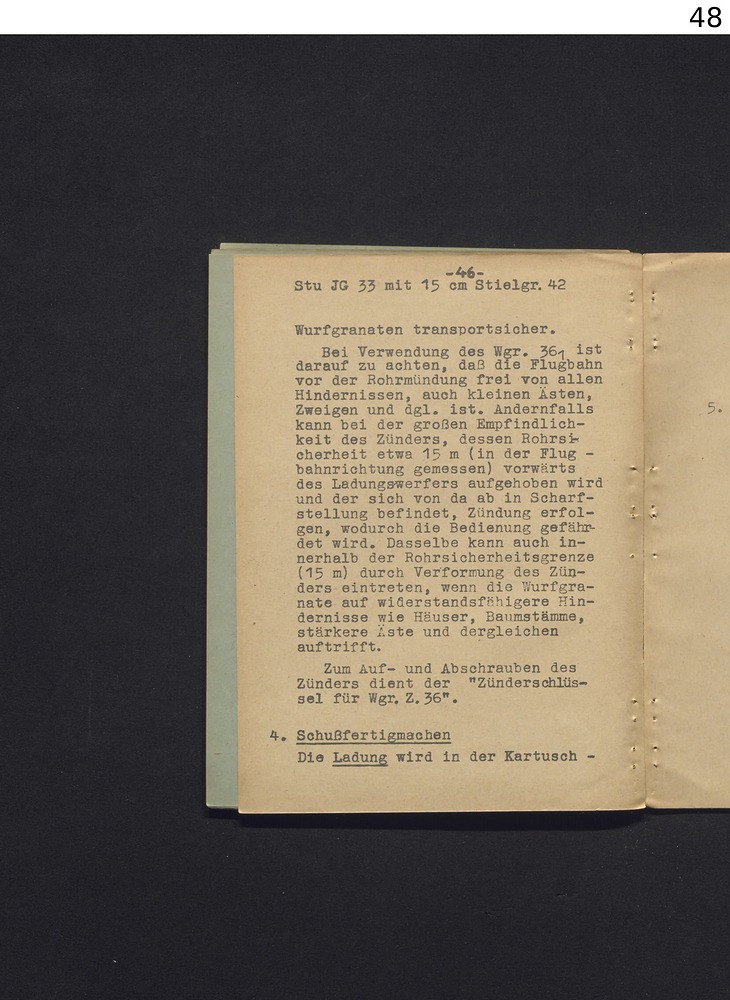 48
-46-
Stu JG 33 mit 15 cm Stielgr. 42
Wurfgranaten transportsicher.
Bei Verwendung des Wgr. 36₁ ist
darauf zu achten, daß die Flugbahn
vor der Rohrmündung frei von allen
Hindernissen, auch kleinen Ästen,
Zweigen und dgl. ist. Andernfalls
kann bei der großen Empfindlich-
keit des Zünders, dessen Rohrsi-
cherheit etwa 15 m (in der Flug -
bahnrichtung gemessen) vorwärts
des Ladungswerfers aufgehoben wird
und der sich von da ab in Scharf-
stellung befindet, Zündung erfol-
gen, wodurch die Bedienung gefähr-
det wird. Dasselbe kann auch in-
nerhalb der Rohrsicherheitsgrenze
(15 m) durch Verformung des Zün-
ders eintreten, wenn die Wurfgra-
nate auf widerstandsfähigere Hin-
dernisse wie Häuser, Baumstämme,
stärkere Äste und dergleichen
auftrifft.
Zum Auf- und Abschrauben des
Zünders dient der "Zünderschlüs-
sel für Wgr. Z. 36".
4. Schußfertigmachen
Die Ladung wird in der Kartusch -
5.